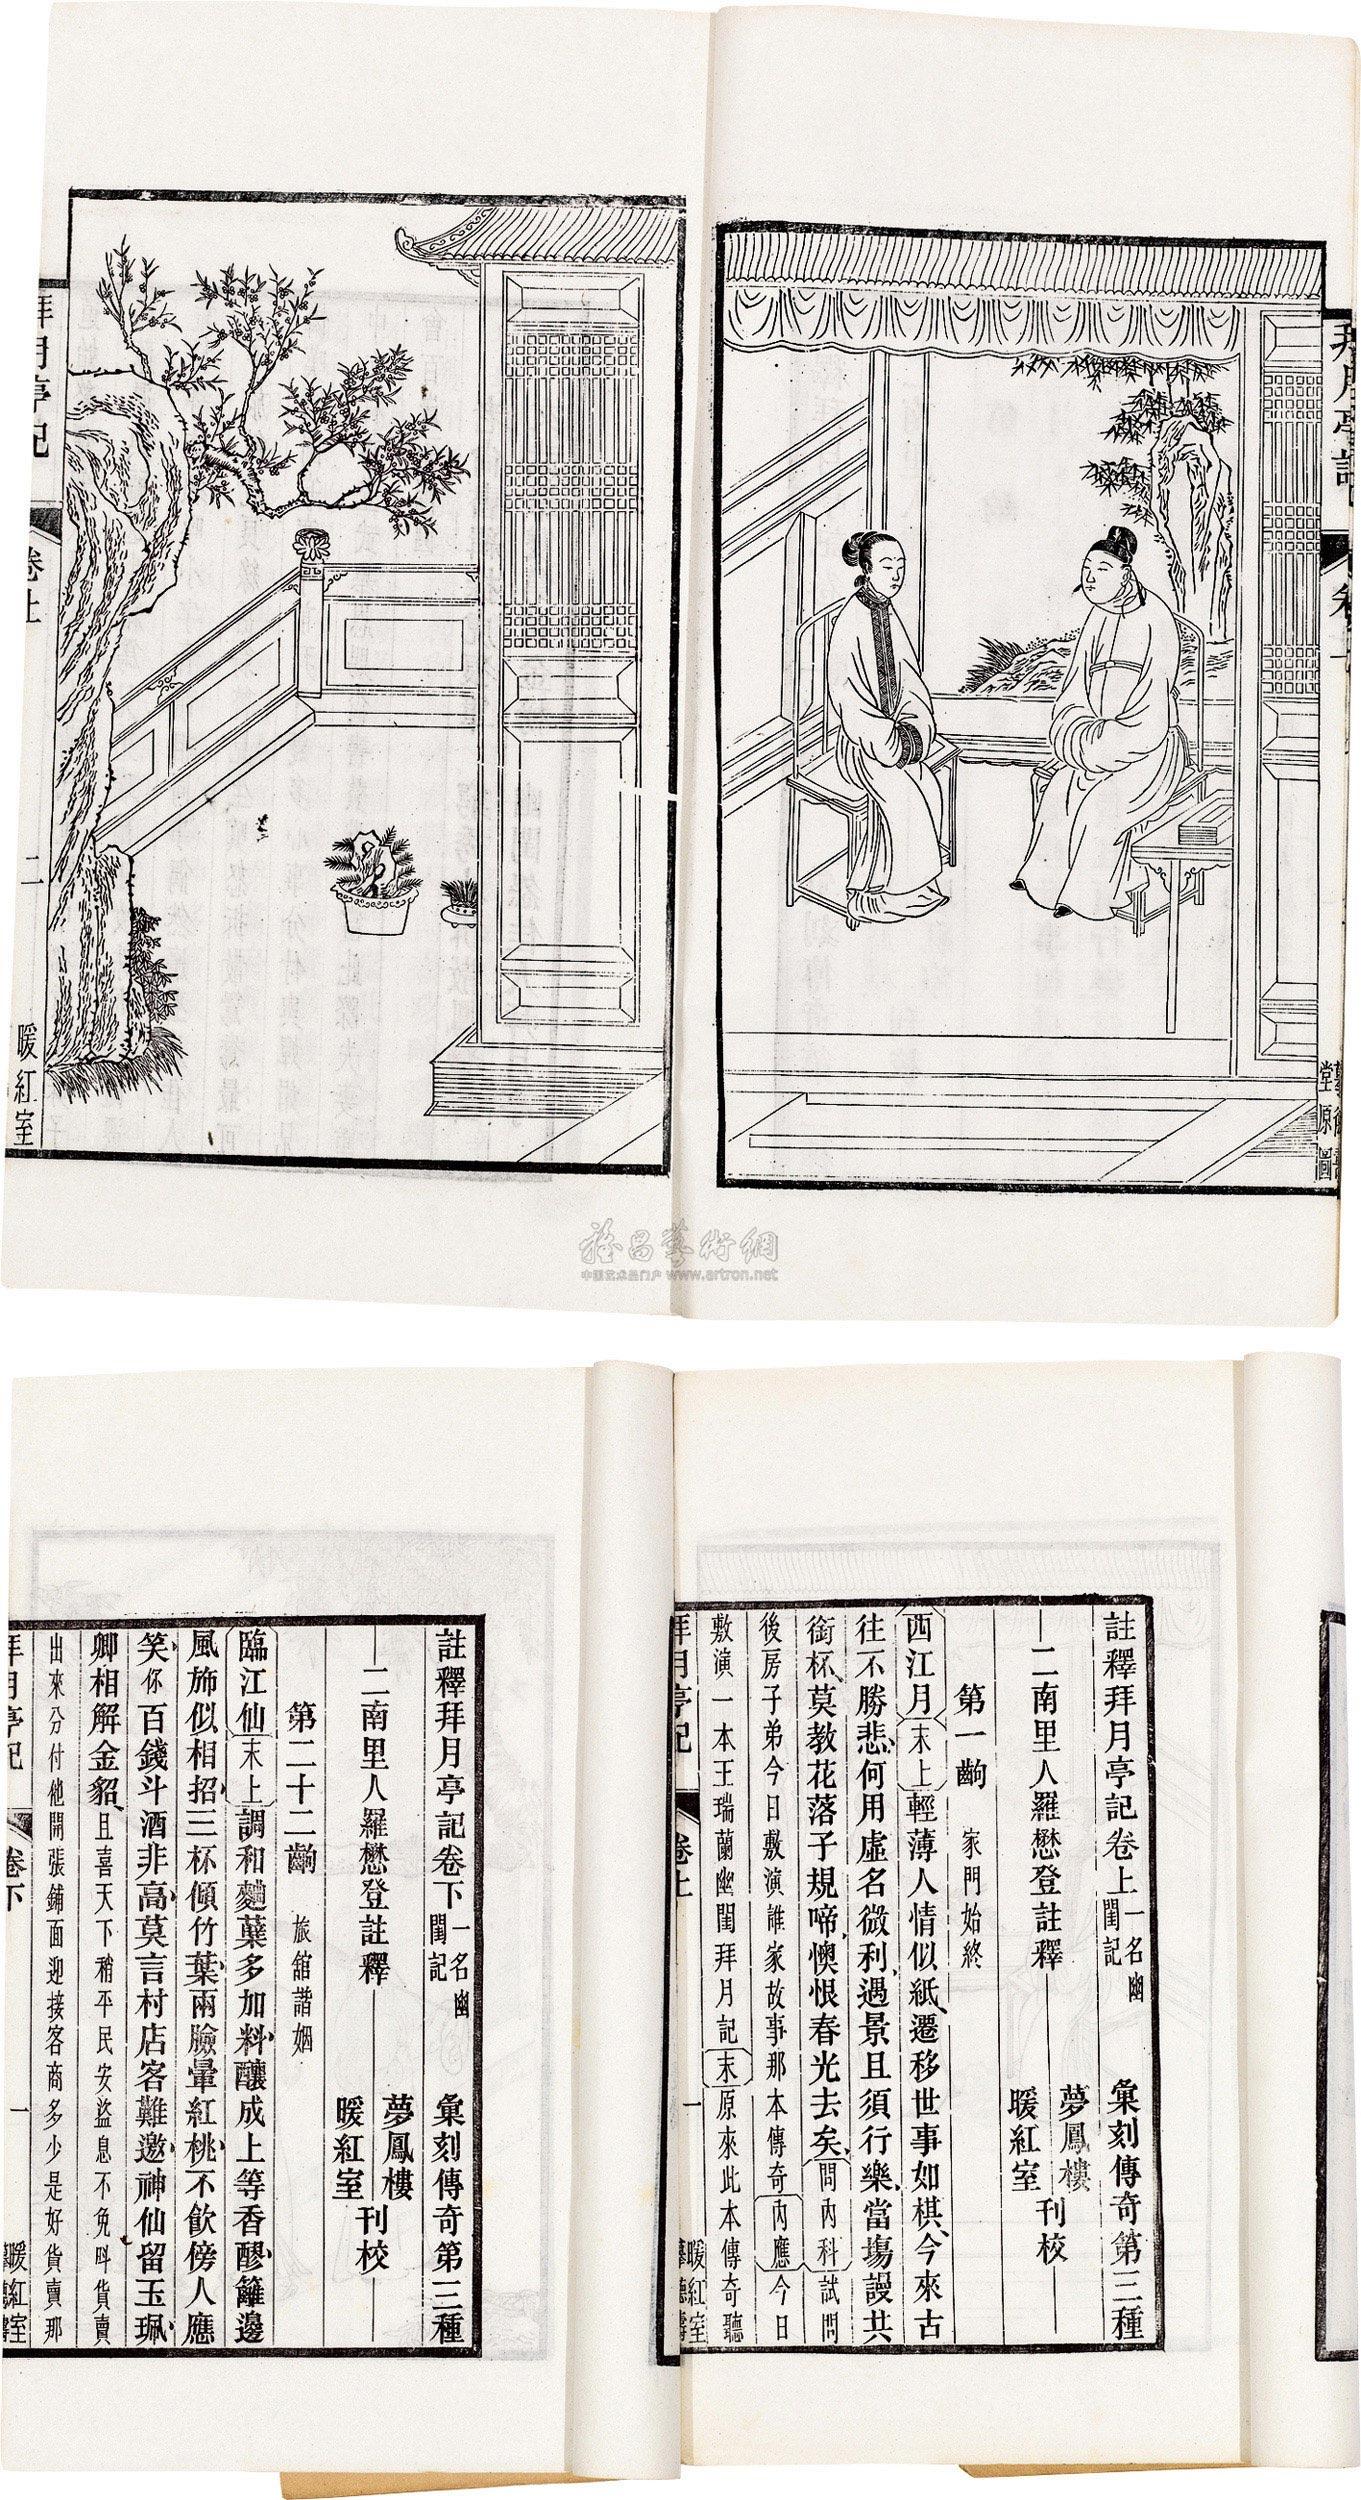 拜月亭記
卷上
拜月亭記
卷上
二
暖紅室
堂原圖
雅昌藝術網
中国艺术品门户 www.artron.net
註釋拜月亭記卷上 一名幽閨記 彙刻傳奇第三種
二南里人羅懋登註釋 夢鳳樓 暖紅室 刊校
第一齣 家門始終
西江月 末上 輕薄人情似紙遷移世事如棋今來古
往不勝悲何用虛名微利遇景且須行樂當場謾共
銜杯莫教花落子規啼懊恨春光去矣 問內科 試問
後房子弟今日敷演誰家故事那本傳奇 內應 今日
敷演一本王瑞蘭幽閨拜月記 末 原來此本傳奇聽
拜月亭記 卷上 一 暖紅室
註釋拜月亭記卷下 一名幽閨記 彙刻傳奇第三種
二南里人羅懋登註釋 夢鳳樓 暖紅室 刊校
第二十二齣 旅館諧姻
臨江仙 末上 調和麯蘗多加料釀成上等香醪籬邊
風斾似相招三杯傾竹葉兩臉暈紅桃不飲傍人應
笑你百錢斗酒非高莫言村店客難邀神仙留玉珮
卿相解金貂且喜天下稍平民安盜息不免叫貨賣
出來分付他開張鋪面迎接客商多少是好貨賣那
拜月亭記 卷下 一 暖紅室